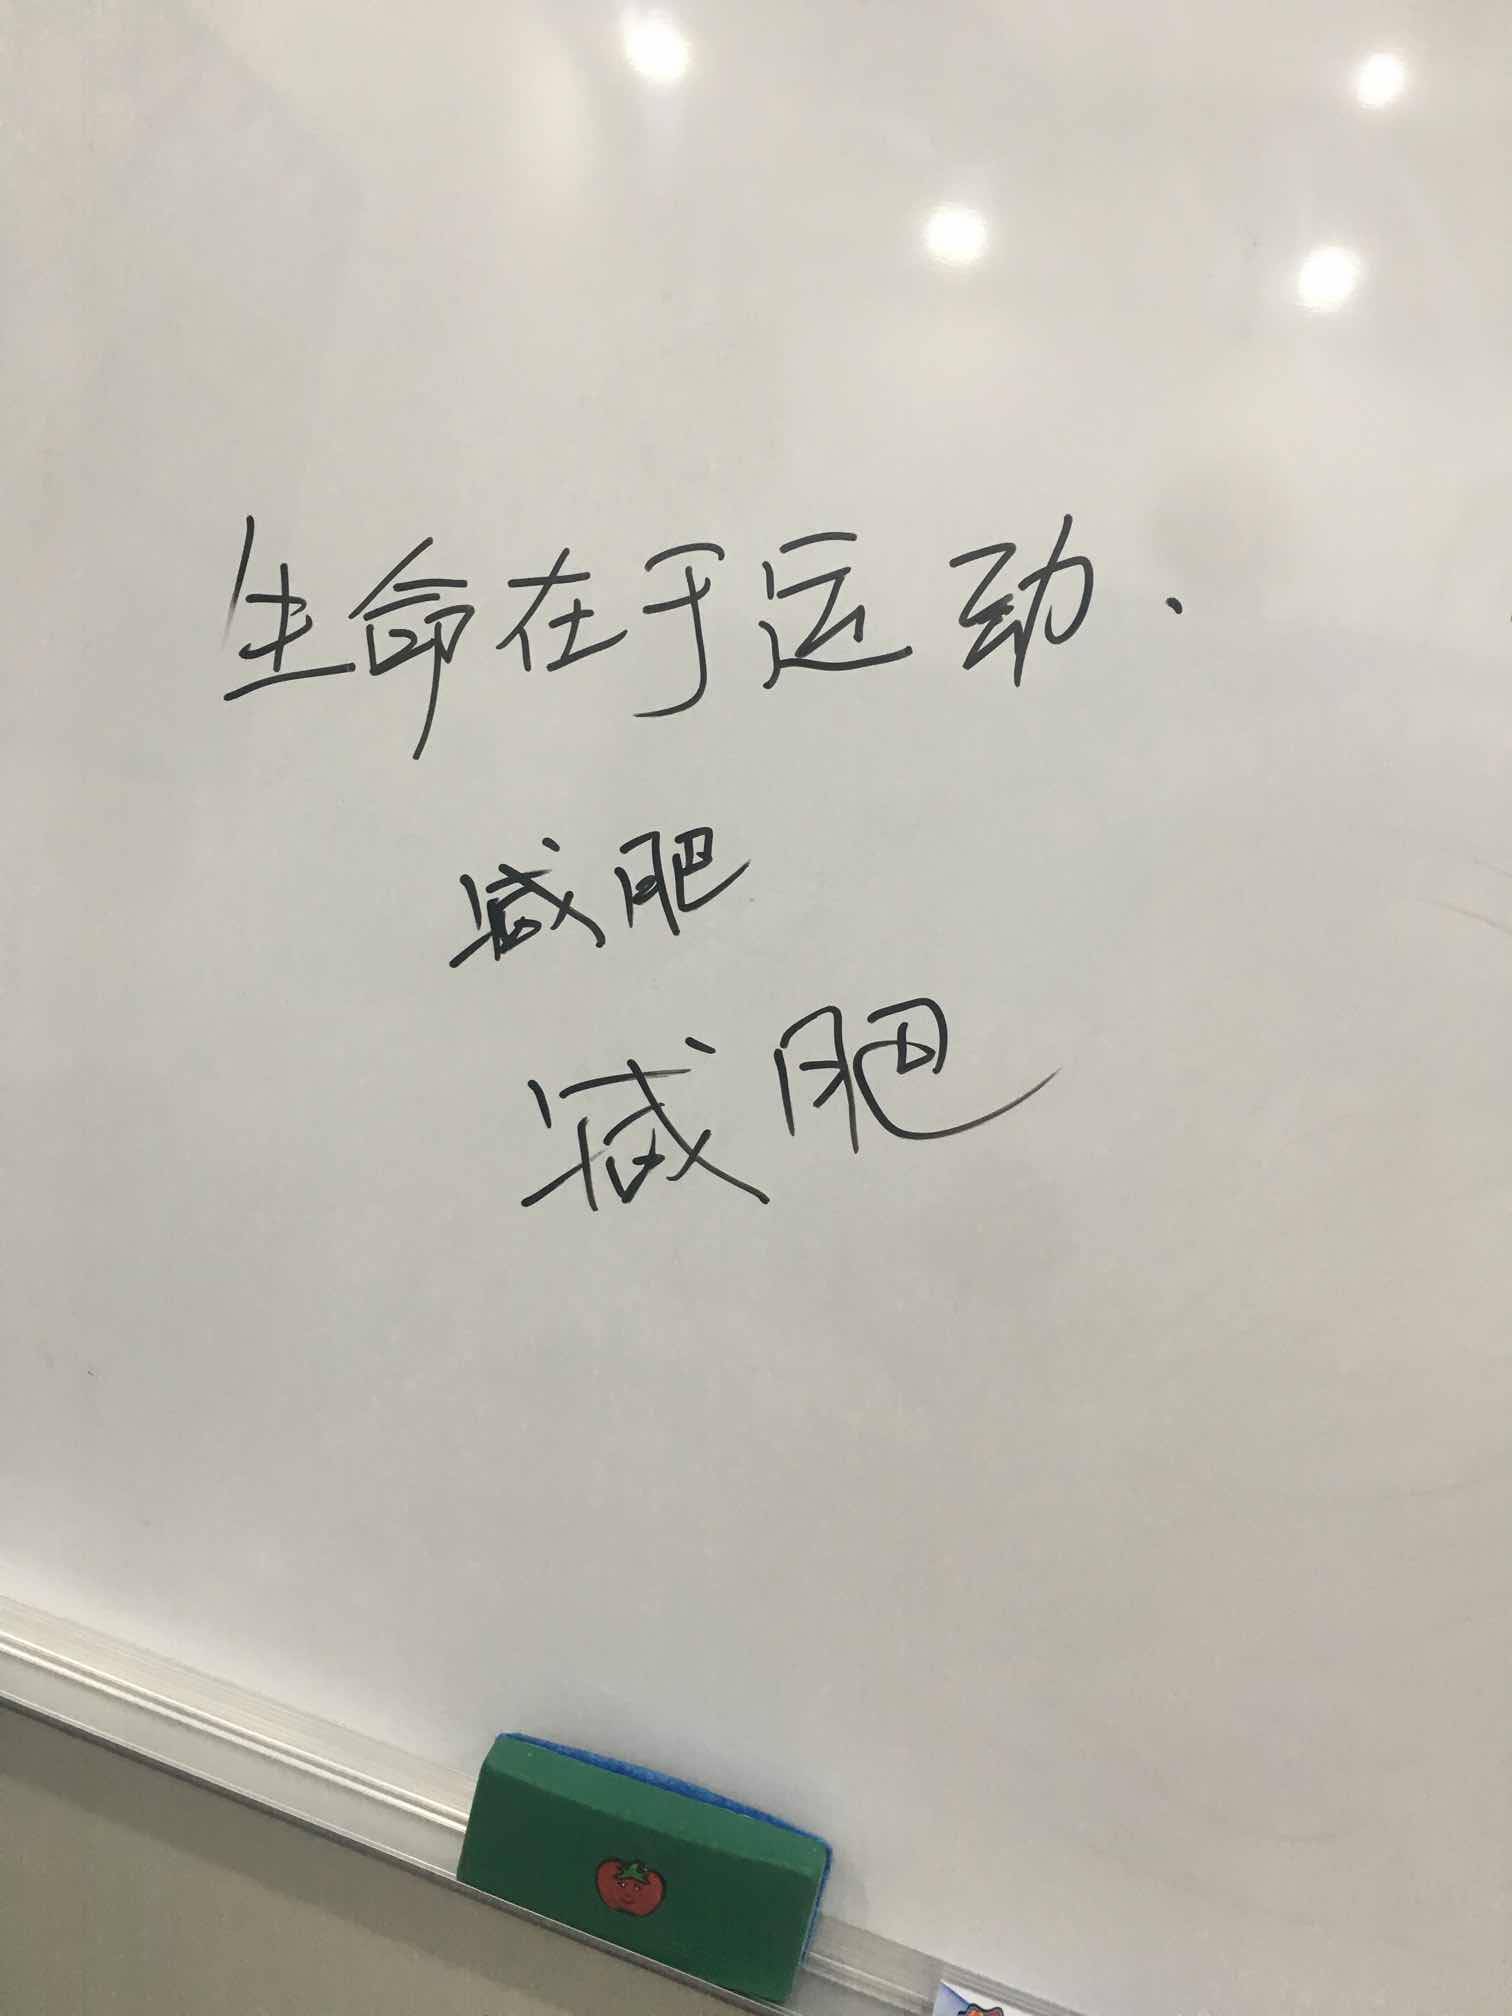 生命在于运动.
减肥
减肥